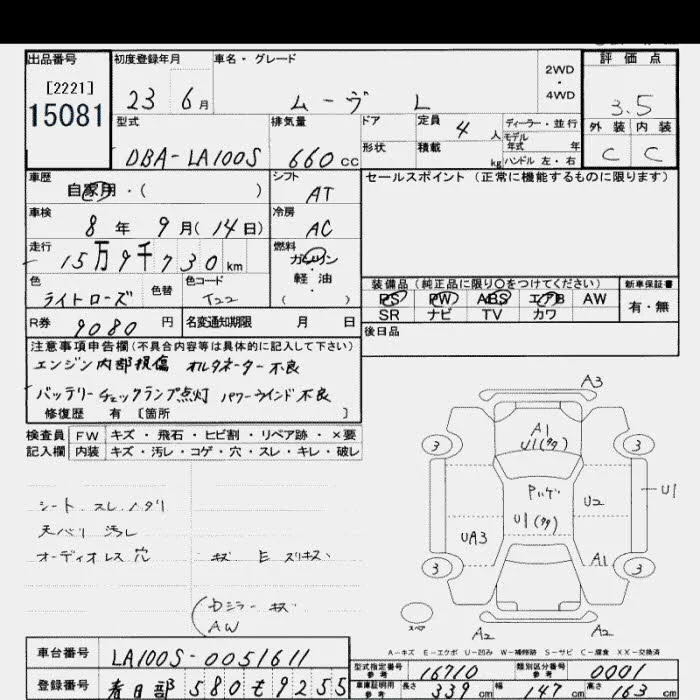 出品番号 初度登録年月 車名・グレード 2WD・4WD 評価点
[2221]
15081
23 6月 ムーヴ L 3.5
型式 排気量 ドア 定員 4人 ディーラー・並行 外装 内装
モデル年式 年
DBA-LA100S 660cc 形状 積載 kg ハンドル 左・右 C C
車歴 シフト セールスポイント(正常に機能するものに限ります)
自家用・( ) AT
車検 冷房
8年 9月(14日) AC
走行 燃料
15万9千730km ガソリン・軽油
色 色替 色コード ( )
ライトローズ T22
装備品(純正品に限り○をつけてください) 新車保証書
PS PW ABS エアB AW 有・無
SR ナビ TV カワ
R券 9080円 名変通知期限 月 日 後日品
注意事項申告欄(不具合内容等は具体的に記入して下さい)
エンジン内部損傷 オルタネーター不良
バッテリーチェックランプ点灯 パワーウインド不良
修復歴 有 [箇所 ]
検査員 FW キズ・飛石・ヒビ割・リペア跡・×要
記入欄 内装 キズ・汚レ・コゲ・穴・スレ・キレ・破レ
シート スレ ノタリ
天バリ 汚レ
オーディオレス穴 キズ E スリキズ
Dミラー キズ
AW
A3
A1
U1(タタ)
3 3
Pハゲ
U2 U1
U1(タタ)
UA3
A1
3 3
スペア
A2 A2
A-キズ E-エクボ U-凹み W-補修跡 S-サビ C-腐食 XX-交換済
車台番号 LA100S-0051611
型式指定番号 参考 16710 類別区分番号 参考 0001
登録番号 春日部 580 も 9255
車庫証明用 参考 長さ 339cm 幅 147cm 高さ 163cm